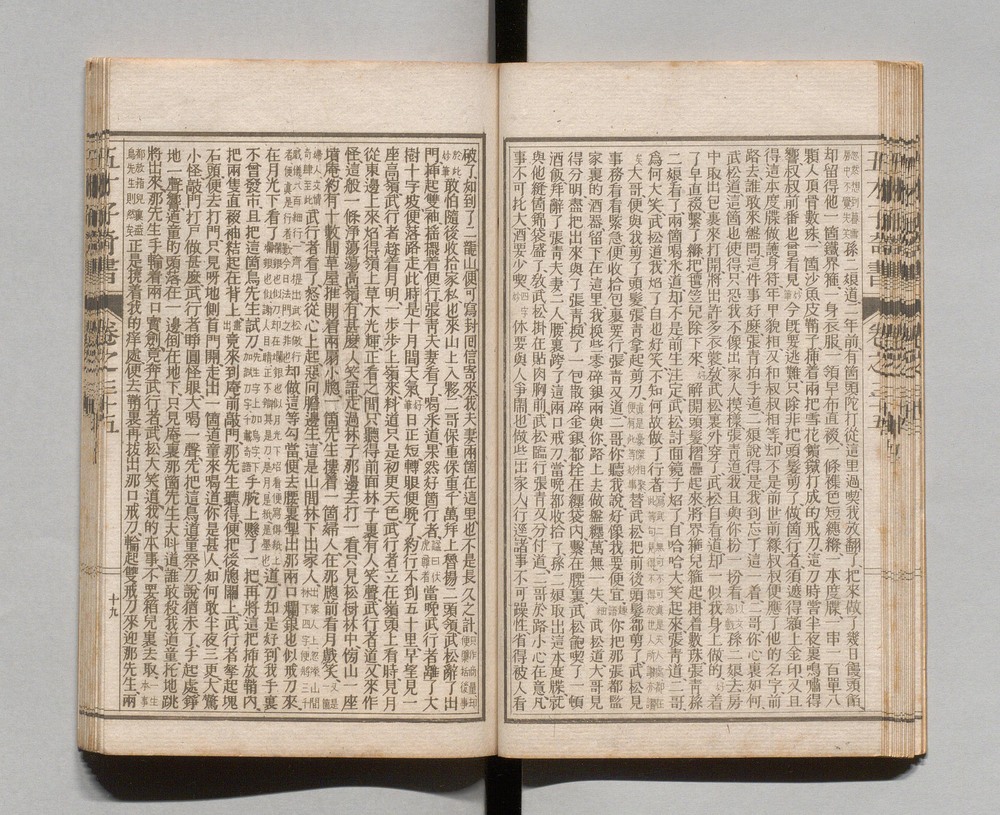 孫二娘道二年前有箇頭陀打從這里過喫我放翻了把來做了幾日饅頭餡
却留得他一箇鐵界箍一身衣服一領皁布直裰一條襍色短繐縧一本度牒一串一百單八
顆人頂骨數珠一箇沙魚皮鞘子揷着兩把雪花鑌鐵打成的戒刀這刀時嘗半夜裏鳴嘯得
響叔叔前番也曾看見今旣要逃難只除非把頭髮剪了做箇行者須遮得額上金印又且
得這本度牒做護身符年甲貌相又和叔叔相等却不是前世前緣叔叔便應了他的名字前
路去誰敢來盤問這件事好麽張青拍手道二娘說得是我到忘了這一着二哥你心裏如何
武松道這箇也使得只恐我不像出家人模樣張青道我且與你扮一扮看孫二娘去房
中取出包裹來打開將出許多衣裳敎武松裏外穿了武松自看道却一似我身上做的着
了皁直裰繫了縧把氊笠兒除下來解開頭髮摺疊起來將界箍兒箍起掛着數珠張青孫
二娘看了兩箇喝采道却不是前生注定武松討面鏡子炤了自哈哈大笑起來張青道二哥
爲何大笑武松道我炤了自也好笑不知何故做了行者
大哥便與我剪了頭髮張青拿起剪刀替武松把前後頭髮都剪了武松見
事務看看緊急便收拾包裹要行張青又道二哥你聽我說好像我要便宜你把那張都監
家裏的酒器留下在這里我換些零碎銀兩與你路上去做盤纏萬無一失武松道大哥見
得分明盡把出來與了張青換了一包散碎金銀都拴在纏袋內繫在腰裏武松飽喫了一頓
酒飯拜辭了張青夫妻二人腰裏跨了這兩口戒刀當晚都收拾了孫二娘取出這本度牒就
與他縫箇錦袋盛了敎武松掛在貼肉胸前武松臨行張青又分付道二哥於路小心在意凡
事不可托大酒要少喫休要與人爭鬧也做些出家人行徑諸事不可躁性省得被人看
破了如到了二龍山便可寫封回信寄來我夫妻兩箇在這里也不是長久之計
敢怕隨後收拾家私也來山上入夥二哥保重保重千萬拜上魯揚二頭領武松辭了出
門揷起雙袖搖擺着便行張青夫妻看了喝采道果然好箇行者當晚武行者離了大
樹十字坡便落路走此時是十月間天氣日正短轉眼便晩了約行不到五十里早望見一
座高嶺武行者趁着月明一步步上嶺來料道只是初更天色武行者立在嶺頭上看時見月
從東邊上來炤得嶺上草木光輝正看之間只聽得前面林子裏有人笑聲武行者道又來作
怪這般一條淨蕩蕩高嶺有甚麽人笑語走過林子那邊去打一看只見松樹林中傍山一座
墳庵約有十數間草屋推開着兩扇小牕一箇先生摟着一箇婦人在那牕前看月戲笑
武行者看了怒從心上起惡向膽邊生這是山間林下出家人
却做這等勾當便去腰裏掣出那兩口爛銀也似戒刀來
在月光下看了道刀却是好到我手裏
不曾發市且把這箇鳥先生試刀手腕上懸了一把再將這把揷放鞘內
把兩隻直裰袖結起在背上竟來到庵前敲門那先生聽得便把後牕關上武行者拏起塊
石頭便去打門只見呀地側首門開走出一箇道童來喝道你是甚人如何敢半夜三更大驚
小怪敲門打戶做甚麽武行者睜圓怪眼大喝一聲先把這鳥道童祭刀說猶未了手起處錚
地一聲響道童的頭落在一邊倒在地下只見庵裏那箇先生大叫道誰敢殺我道童托地跳
將出來那先生手輪着兩口寶劍竟奔武行者武松大笑道我的本事不要箱兒裏去取
正是撓着我的痒處便去鞘裏再拔出那口戒刀輪起雙戒刀來迎那先生兩
十九